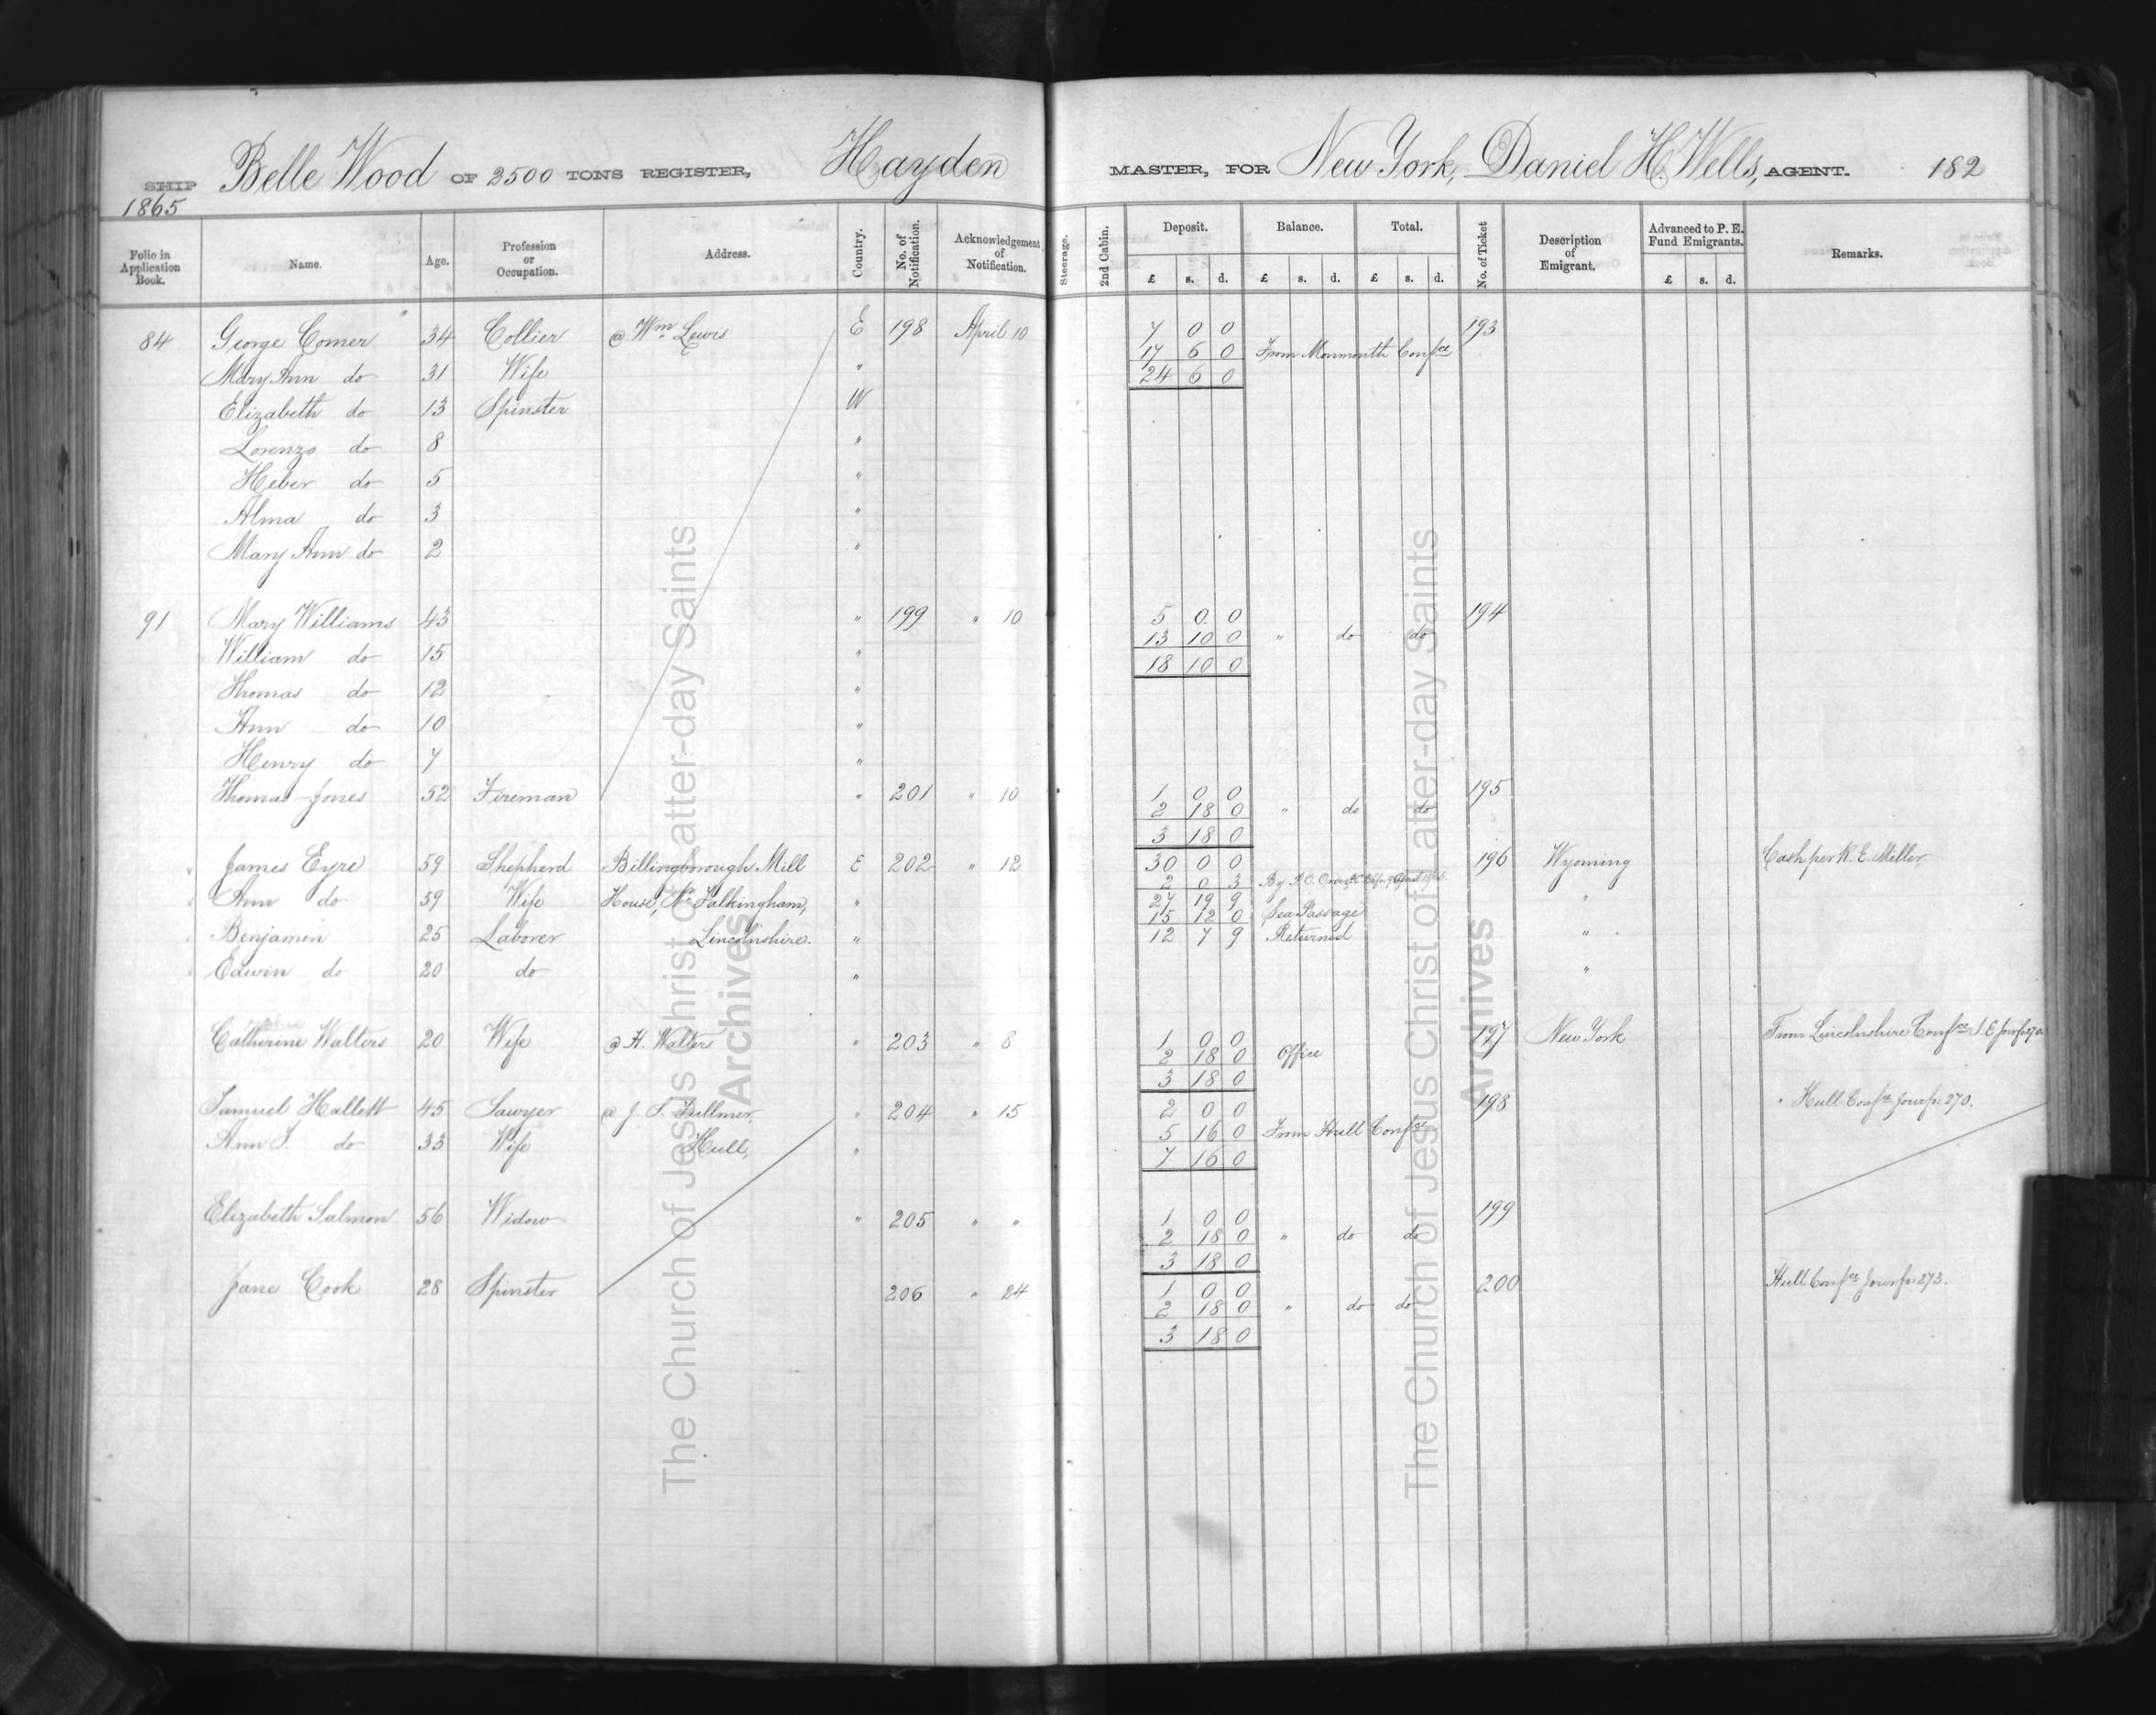 SHIP Belle Wood OF 2500 TONS REGISTER, Hayden MASTER, FOR New York, Daniel H. Wells, AGENT. 182
1865
Folio in Application Book. Name. Age. Profession or Occupation. Address. Country. No. of Notification. Acknowledgement of Notification. Steerage. 2nd Cabin. Deposit. Balance. Total. No. of Ticket Description of Emigrant. Advanced to P. E. Fund Emigrants. Remarks.
£ s. d. £ s. d. £ s. d. £ s. d.
84 George Comer 34 Collier @ Wm Lewis E 198 April 10 7 0 0 193
17 6 0 From Monmouth Confce
Mary Ann do 31 Wife " 24 6 0
Elizabeth do 13 Spinster W
Lorenzo do 8 "
Heber do 5 "
Alma do 3 "
Mary Ann do 2 "
91 Mary Williams 43 " 199 " 10 5 0 0 194
13 10 0 " do do
William do 15 " 18 10 0
Thomas do 12 "
Ann do 10 "
Henry do 7 "
Thomas Jones 52 Fireman " 201 " 10 1 0 0 195
2 18 0 " do do
3 18 0
James Eyre 59 Shepherd Billingborough Mill E 202 " 12 30 0 0 196 Wyoming Cash per R. E. Miller
2 0 3 By P. O. Order
Ann do 59 Wife House, Nr Falkingham, " 27 19 9 "
15 12 0 Sea Passage
Benjamin 25 Laborer Lincolnshire. " 12 7 9 Returned "
Edwin do 20 do " "
Catherine Walters 20 Wife @ H. Walters " 203 " 8 1 0 0 197 New York From Lincolnshire Confce
2 18 0 Office
3 18 0
Samuel Hallett 45 Sawyer @ J. S. Fullmer, " 204 " 15 2 0 0 198 " Hull Confce Jour p. 270.
5 16 0 From Hull Confce
Ann S. do 33 Wife Hull, " 7 16 0
Elizabeth Salmon 56 Widow " 205 " " 1 0 0 199
2 18 0 " do do
3 18 0
Jane Cook 28 Spinster 206 " 24 1 0 0 200 Hull Confce Jour p. 273.
2 18 0 " do do
3 18 0
The Church of Jesus Christ of Latter-day Saints
Archives
The Church of Jesus Christ of Latter-day Saints
Archives